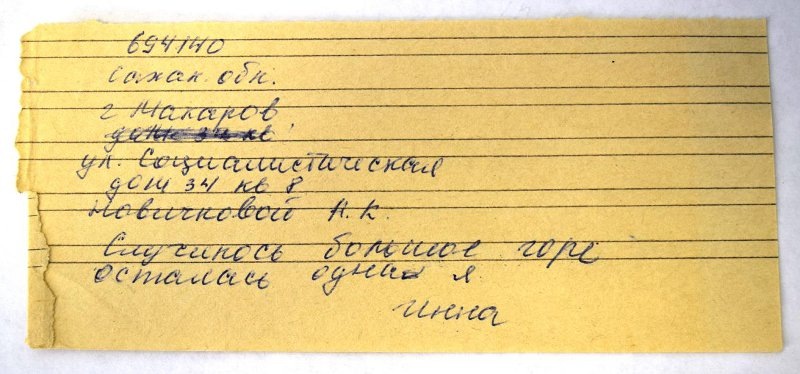 694140
Сахал. обл.
г Макаров
дом 34 кв
ул. Социалистическая
дом 34 кв 8
Новичковой Н. К.
Случилось большое горе
осталась одна я.
Инна